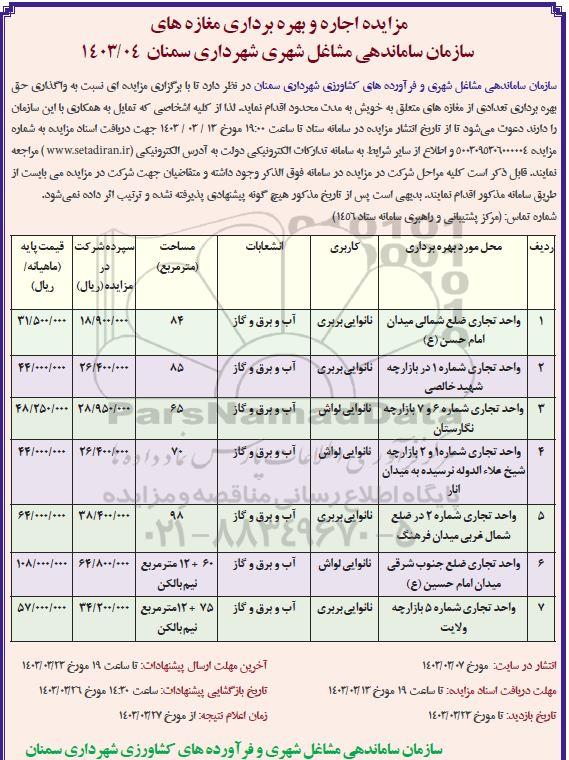 مزایده اجاره و بهره برداری مغازه های
سازمان ساماندهی مشاغل شهری شهرداری سمنان ۱۴۰۳/۰۴
سازمان ساماندهی مشاغل شهری و فرآورده های کشاورزی شهرداری سمنان در نظر دارد تا با برگزاری مزایده ای نسبت به واگذاری حق
بهره برداری تعدادی از مغازه های متعلق به خویش به مدت محدود اقدام نماید. لذا از کلیه اشخاصی که تمایل به همکاری با این سازمان
را دارند دعوت می‌شود تا از تاریخ انتشار مزایده در سامانه ستاد تا ساعت ۱۹:۰۰ مورخ ۱۳ / ۰۳ / ۱۴۰۳ جهت دریافت اسناد مزایده به شماره
مزایده ۵۰۰۳۰۹۵۳۰۶۰۰۰۰۰۴ و اطلاع از سایر شرایط به سامانه تدارکات الکترونیکی دولت به آدرس الکترونیکی (www.setadiran.ir) مراجعه
نمایند. قابل ذکر است کلیه مراحل شرکت در مزایده در سامانه فوق الذکر وجود داشته و متقاضیان جهت شرکت در مزایده می بایست از
طریق سامانه مذکور اقدام نمایند. بدیهی است پس از تاریخ مذکور هیچ گونه پیشنهادی پذیرفته نشده و ترتیب اثر داده نمی‌شود.
شماره تماس: (مرکز پشتیبانی و راهبری سامانه ستاد ۱۴۵۶)
ردیف محل مورد بهره برداری کاربری انشعابات مساحت (مترمربع) سپرده شرکت در مزایده (ریال) قیمت پایه (ماهیانه/ ریال)
۱ واحد تجاری ضلع شمالی میدان امام حسن (ع) نانوایی بربری آب و برق و گاز ۸۴ ۱۸/۹۰۰/۰۰۰ ۳۱/۵۰۰/۰۰۰
۲ واحد تجاری شماره ۱ در بازارچه شهید خالصی نانوایی بربری آب و برق و گاز ۸۵ ۲۶/۴۰۰/۰۰۰ ۴۴/۰۰۰/۰۰۰
۳ واحد تجاری شماره ۶ و ۷ بازارچه نگارستان نانوایی لواش آب و برق و گاز ۶۵ ۲۸/۹۵۰/۰۰۰ ۴۸/۲۵۰/۰۰۰
۴ واحد تجاری شماره ۱ و ۲ بازارچه شیخ علاء الدوله نرسیده به میدان انار نانوایی لواش آب و برق و گاز ۷۰ ۲۶/۴۰۰/۰۰۰ ۴۴/۰۰۰/۰۰۰
۵ واحد تجاری شماره ۲ در ضلع شمال غربی میدان فرهنگ نانوایی بربری آب و برق و گاز ۹۸ ۳۸/۴۰۰/۰۰۰ ۶۴/۰۰۰/۰۰۰
۶ واحد تجاری ضلع جنوب شرقی میدان امام حسین (ع) نانوایی لواش آب و برق و گاز ۶۰ + ۱۲ مترمربع نیم بالکن ۶۴/۸۰۰/۰۰۰ ۱۰۸/۰۰۰/۰۰۰
۷ واحد تجاری شماره ۵ بازارچه ولایت نانوایی بربری آب و برق و گاز ۷۵ + ۱۲ مترمربع نیم بالکن ۳۴/۲۰۰/۰۰۰ ۵۷/۰۰۰/۰۰۰
ParsNamadData
پایگاه اطلاع رسانی مناقصه و مزایده
۰۲۱-۸۸۳۴۹۶۷۰-۵
انتشار در سایت: مورخ ۱۴۰۳/۰۳/۰۷
آخرین مهلت ارسال پیشنهادات: تا ساعت ۱۹ مورخ ۱۴۰۳/۰۳/۲۳
مهلت دریافت اسناد مزایده: تا ساعت ۱۹ مورخ ۱۴۰۳/۰۳/۱۳
تاریخ بازگشایی پیشنهادات: ساعت ۱۴:۳۰ مورخ ۱۴۰۳/۰۳/۲۶
تاریخ بازدید: تا مورخ ۱۴۰۳/۰۳/۲۳
زمان اعلام نتیجه: از مورخ ۱۴۰۳/۰۳/۲۷
سازمان ساماندهی مشاغل شهری و فرآورده های کشاورزی شهرداری سمنان